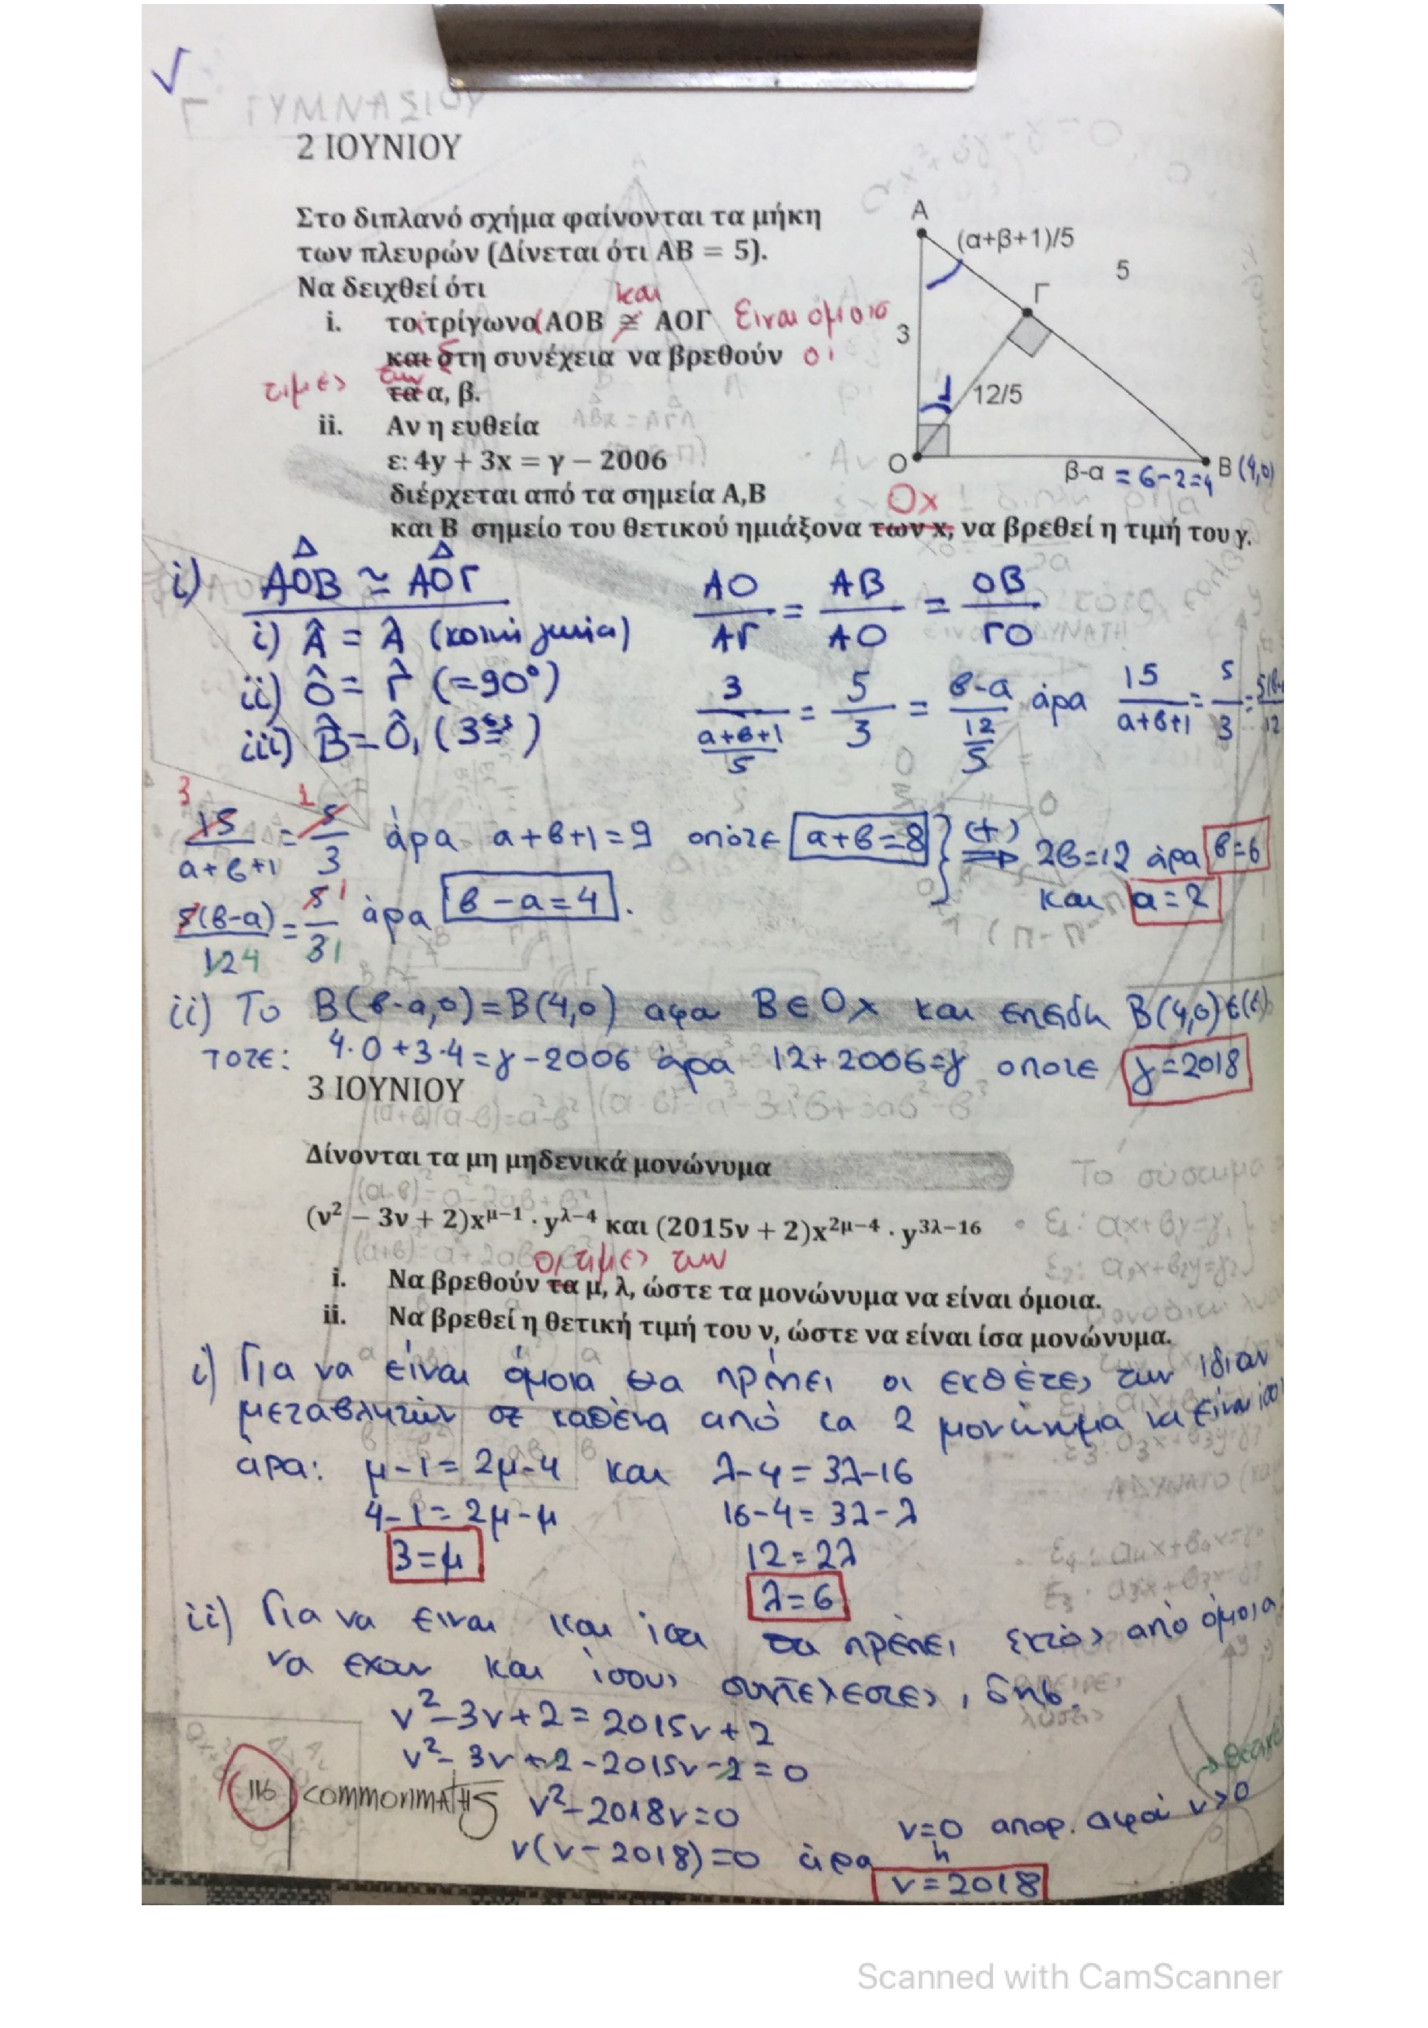 Γ ΓΥΜΝΑΣΙΟΥ
2 ΙΟΥΝΙΟΥ
Στο διπλανό σχήμα φαίνονται τα μήκη
των πλευρών (Δίνεται ότι ΑΒ = 5).
Να δειχθεί ότι
και
i. το τρίγωνο ΑΟΒ ≅ ΑΟΓ Είναι όμοια
και στη συνέχεια να βρεθούν οι
τιμές των
τα α, β.
ii. Αν η ευθεία
ε: 4y + 3x = γ − 2006
διέρχεται από τα σημεία Α,Β
Οx
και Β σημείο του θετικού ημιάξονα των x, να βρεθεί η τιμή του γ.
Α
(α+β+1)/5
5
Γ
3
12/5
Ο
β-α = 6-2=4
Β (4,0)
i) ΑΟΒ ≃ ΑΟΓ
i) Α = Α (κοινή γωνία)
ii) Ο = Γ (=90°)
iii) Β = Ο₁ (3ες)
ΑΟ/ΑΓ = ΑΒ/ΑΟ = ΟΒ/ΓΟ
3/((α+β+1)/5) = 5/3 = (β-α)/(12/5) άρα 15/(α+β+1) = 5/3 = 5(β-/12
15/(α+β+1) = 5/3 άρα α+β+1=9 οπότε α+β=8 (+) ⇒ 2β=12 άρα β=6
5(β-α)/12 = 5/3 άρα β-α=4. και α=2
ii) Το Β(β-α,0)=Β(4,0) αφου Β∈Οx και επειδη Β(4,0)∈(ε)
τοτε: 4·0+3·4=γ-2006 άρα 12+2006=γ οποτε γ=2018
3 ΙΟΥΝΙΟΥ
Δίνονται τα μη μηδενικά μονώνυμα
(ν² − 3ν + 2)x^{μ−1} · y^{λ−4} και (2015ν + 2)x^{2μ−4} · y^{3λ−16}
οι τιμές των
i. Να βρεθούν τα μ, λ, ώστε τα μονώνυμα να είναι όμοια.
ii. Να βρεθεί η θετική τιμή του ν, ώστε να είναι ίσα μονώνυμα.
i) Για να είναι όμοια θα πρέπει οι εκθέτες των ίδιων
μεταβλητών σε καθένα από τα 2 μονώνυμα να είναι ίσοι
άρα: μ-1=2μ-4 και λ-4=3λ-16
4-1=2μ-μ 16-4=3λ-λ
3=μ 12=2λ
λ=6
ii) Για να ειναι και ίσα θα πρέπει εκτός από όμοια
να εχουν και ίσους συντελεστες, δηλ.
ν²-3ν+2=2015ν+2
ν²-3ν+2-2015ν-2=0
ν²-2018ν=0
ν(ν-2018)=0 άρα ν=0 απορ. αφού ν>0
ή
ν=2018
116 COMMONMATHS
Scanned with CamScanner